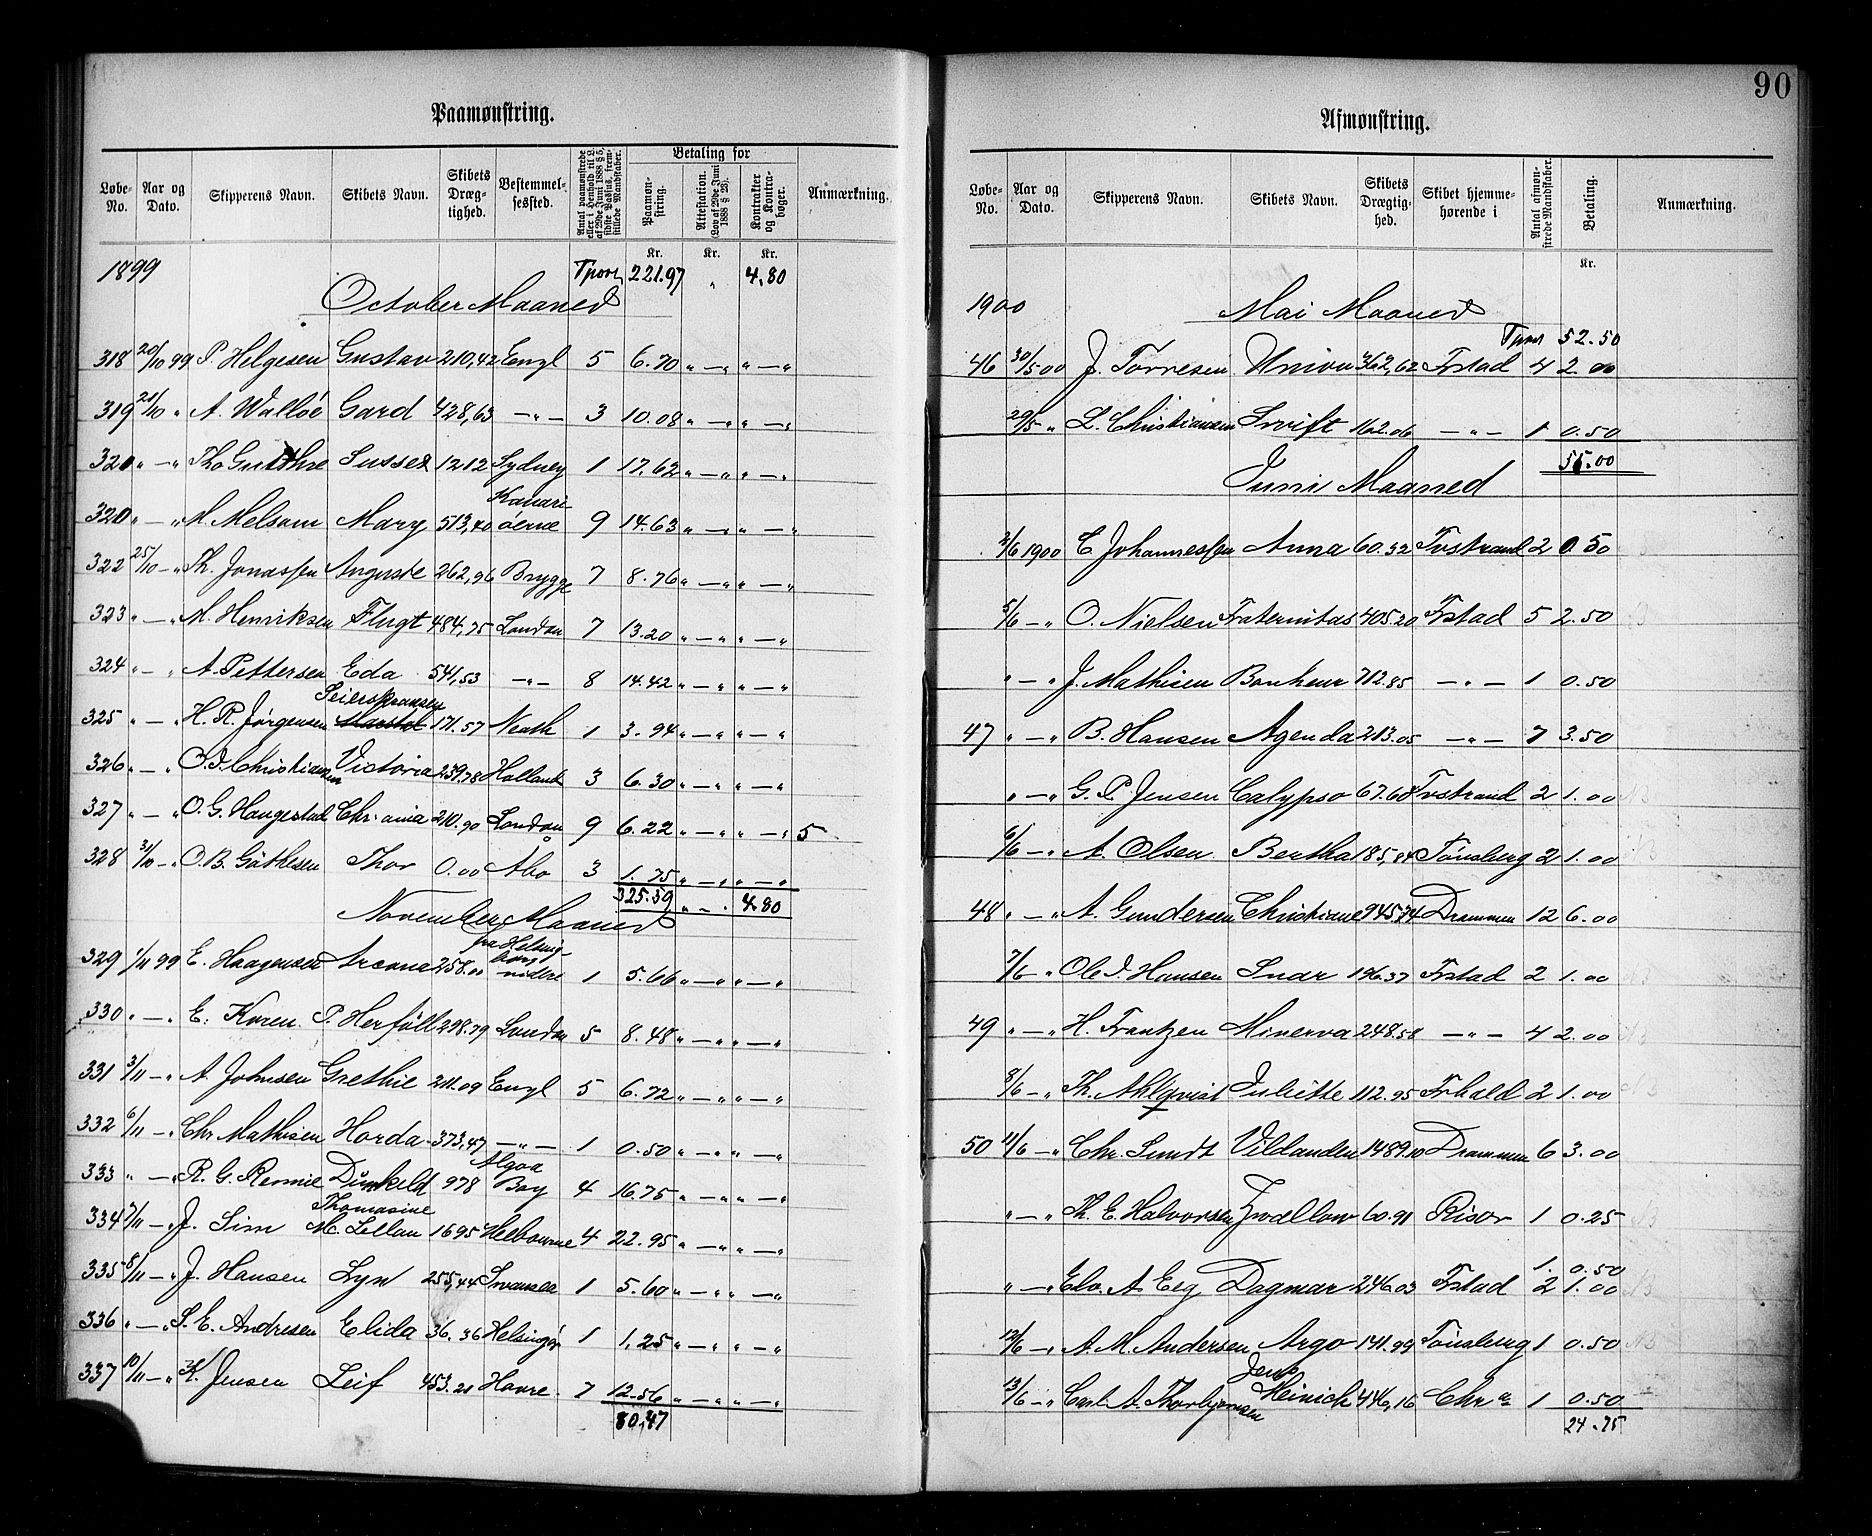 90
Paamønstring.
Løbe-No. Aar og Dato. Skipperens Navn. Skibets Navn. Skibets Dræg-tighed. Bestemmel-sessted. Antal paamønstrede eller i Henhold til L. af 29de Juni 1888 § 5, sidste Passus, frem-stillede Mandskaber. Betaling for Paamøn-string. Attestation. (Lov af 29de Juni 1888 § 28). Kontrakter og Kontra-bøger. Anmærkning.
Kr. Kr. Kr.
1899 Tport 221.97 " 4.80
October Maaned
318 20/10 99 P. Helgesen Gustav 210,42 Engl 5 6.70 " — " " — "
319 21/10 " A. Walløe Gard 428,63 — " — 3 10.08 " — " " — "
320 " — " Tho Gutthre Sussex 1212 Sydney 1 17.62 " — " " — "
320 " — " M. Melsom Mary 513,40 Kanari øerne 9 14.63 " — " " — "
322 25/10 — " Th. Jonassen Auguste 262,96 Brygge 7 8.76 " — " " — "
323 " — " M. Henriksen Flugt 484,75 London 7 13.20 " — " " — "
324 " — " A. Pettersen Eida 541,53 — " — 8 14.42 " — " " — "
325 " — " H. R. Jørgensen Seierskransen 171.57 Neath 1 3.94 " — " " — "
326 " — " O. I. Christiansen Victoria 239.78 Holland 3 6.30 " — " " — "
327 " — " O. G. Haugestad Chr. ania 210.90 London 9 6.22 " — " " — " 5
328 31/10 — " O. B. Gøthesen Thor 0.00 Åbo 3 1.75 " — " " — "
325.59 " — . 4.80
November Maaned
329 1/11 99 E. Haagensen Arcona 258.00 fra Helsing-borg videre 1 5.66 " — " " — "
330 " — " E. Koren P. Herføll 298.79 London 5 8.48 " — " " — "
331 3/11 — " A. Johnsen Grethie 211.09 Engl 5 6.72 " — " " — "
332 6/11 — " Chr. Mathisen Horda 373,47 — " — 1 0.50 " — " " — "
333 " — " R. G. Rennie Dunkeld 978 Algoa Bay 4 16.75 " — " " — "
334 7/11 — " J. Sim Thomasine Mc Lellan 1695 Melbourne 4 22.95 " — " " — "
335 8/11 — " J. Hansen Lyn 255,44 Swansea 1 5.60 " — " " — "
336 " — " S. E. Andresen Elida 36.36 Helsingør 1 1.25 " — " " — "
337 10/11 — " K. Jensen Leif 453.21 Havre 7 12.56 " — " " — "
80,47
Afmønstring.
Løbe-No. Aar og Dato. Skipperens Navn. Skibets Navn. Skibets Drægtig-hed. Skibet hjemme-hørende i Antal afmøn-strede Mandskaber. Betaling. Anmærkning.
Kr.
1900 Mai Maaned
Tport 52.50
46 30/5 00 J. Torresen Union 362,62 Frstad 4 2.00
29/5 " L. Christiansen Swift 162.06 — " — 1 0.50
55.00
Juni Maaned
2/6 1900 C. Johannessen Anna 60.32 Tvstrand 2 0.50
5/6 — " O. Nielsen Fraternitas 405.20 Frstad 5 2.50
" — " J. Mathisen Bonheur 712.85 — " — 1 0.50
47 " — " B. Hansen Agenda 213.05 — " — 7 3.50
" — " G. P. Jensen Calypso 67.68 Tvstrand 2 1.00
6/6 — " A. Olsen Bertha 185,84 Tønsberg 2 1.00
48 " — " A. Gundersen Christiane 945,74 Drammen 12 6.00
7/6 — " Ole I. Hansen Snar 196.37 Frstad 2 1.00
49 " — " H. Frantzen Minerva 248.58 — " — 4 2.00
8/6 — " Th. Ahlqvist Juliette 112.95 Frhald 2 1.00
50 11/6 — " Chr. Lundt Vildanden 1489.10 Drammen 6 3.00
" — " Th. E. Halvorsen Zwallow 60.91 Risør 1 0.25
1. 0.50
" — " Elv. A. Esg Dagmar 246.03 Frstad 2 1.00
12/6 — " A. M. Andersen Argo 141.99 Tønsberg 1 0.50
13/6 — " Carl A. Thorbjørnsen Jens Meinich 446,16 Chr a 1 0.50
24.75